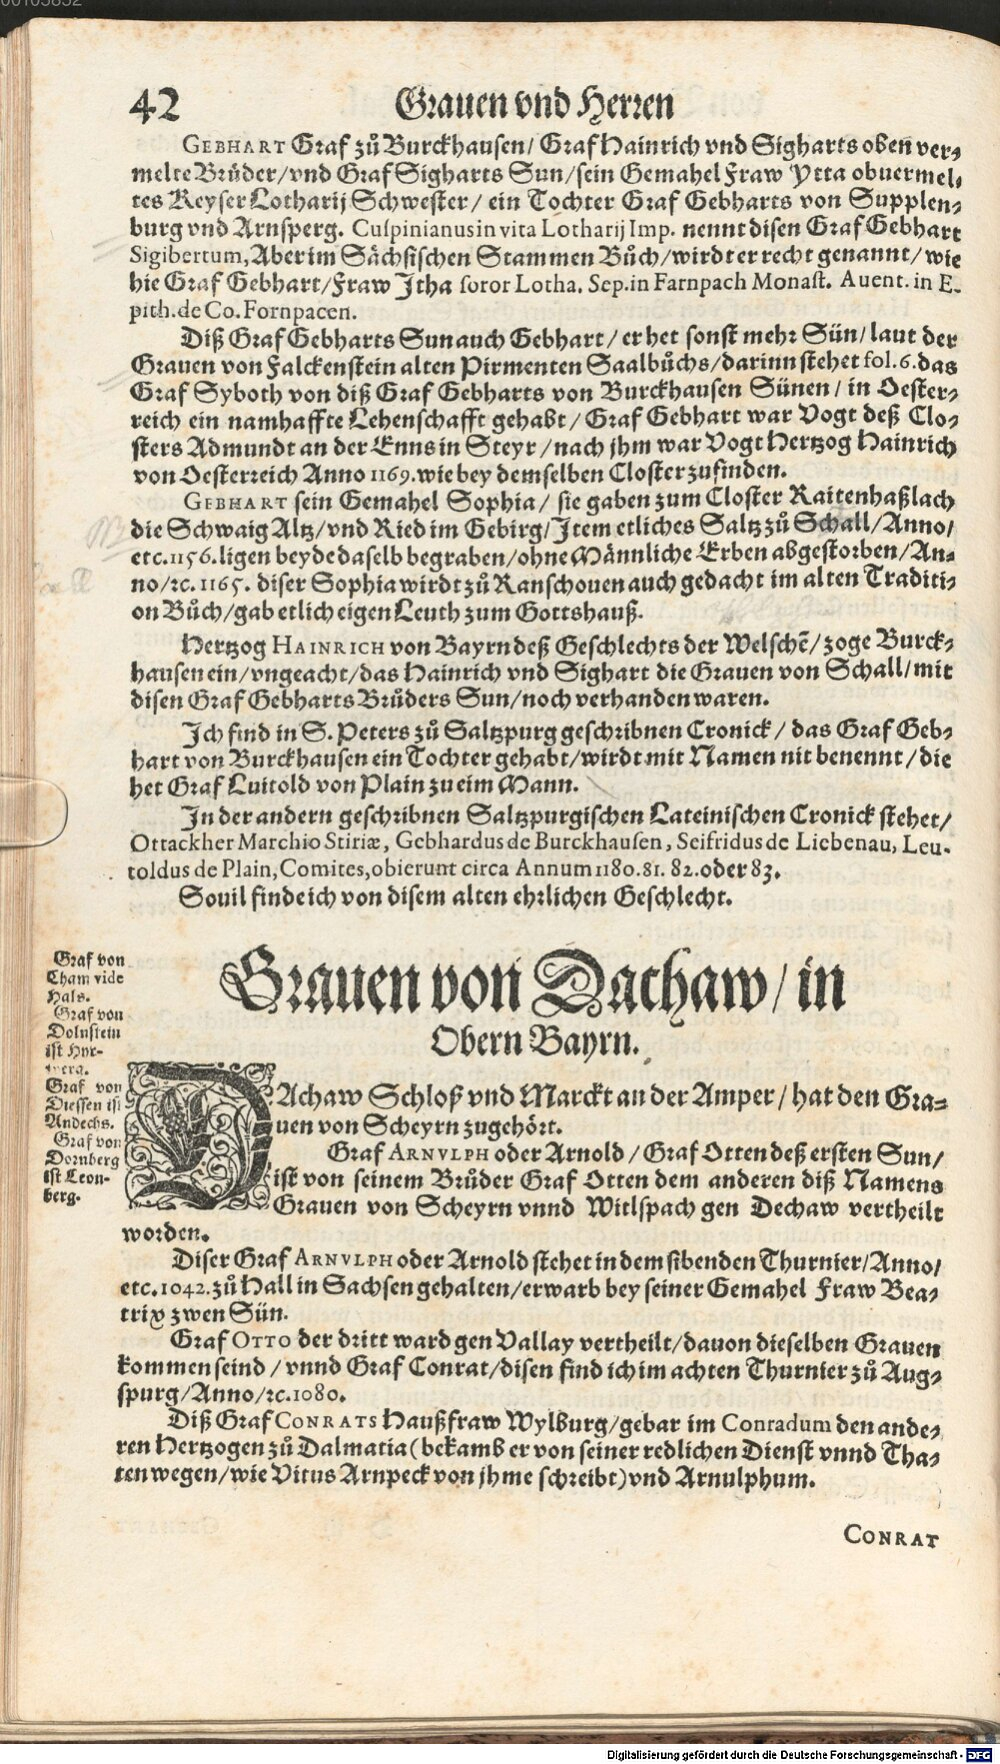 42 Grauen vnd Herren
GEBHART Graf zů Burckhausen/ Graf Hainrich vnd Sigharts oben ver⸗
melte Brůder/ vnd Graf Sigharts Sun/ sein Gemahel Fraw Ytta obuermel⸗
tes Keyser Lotharij Schwester/ ein Tochter Graf Gebharts von Supplen⸗
burg vnd Arnsperg. Cuspinianus in vita Lotharij Imp. nennt disen Graf Gebhart
Sigibertum, Aber im Sächsischen Stammen Bůch/ wirdt er recht genannt/ wie
hie Graf Gebhart/ Fraw Itha soror Lotha. Sep. in Farnpach Monast. Auent. in E⸗
pith. de Co. Fornpacen.
Diß Graf Gebharts Sun auch Gebhart/ er het sonst mehr Sün/ laut der
Grauen von Falckenstein alten Pirmenten Saalbůchs/ darinn stehet fol. 6. das
Graf Syboth von diß Graf Gebharts von Burckhausen Sünen/ in Oester⸗
reich ein namhaffte Lehenschafft gehabt/ Graf Gebhart war Vogt deß Clo⸗
sters Admundt an der Enns in Steyr/ nach jhm war Vogt Hertzog Hainrich
von Oesterreich Anno 1169. wie bey demselben Closter zufinden.
GEBHART sein Gemahel Sophia/ sie gaben zum Closter Raitenhaßlach
die Schwaig Altz/ vnd Ried im Gebirg/ Item etliches Saltz zů Schall/ Anno/
etc. 1156. ligen beyde daselb begraben/ ohne Männliche Erben abgestorben/ An⸗
no/ ꝛc. 1165. diser Sophia wirdt zů Ranschouen auch gedacht im alten Traditi⸗
on Bůch/ gab etlich eigen Leuth zum Gottshauß.
Hertzog HAINRICH von Bayrn deß Geschlechts der Welschē/ zoge Burck⸗
hausen ein/ vngeacht/ das Hainrich vnd Sighart die Grauen von Schall/ mit
disen Graf Gebharts Brůders Sun/ noch verhanden waren.
Ich find in S. Peters zů Saltzpurg geschribnen Cronick/ das Graf Geb⸗
hart von Burckhausen ein Tochter gehabt/ wirdt mit Namen nit benennt/ die
het Graf Luitold von Plain zu eim Mann.
In der andern geschribnen Saltzpurgischen Lateinischen Cronick stehet/
Ottackher Marchio Stiriæ, Gebhardus de Burckhausen, Seifridus de Liebenau, Leu⸗
toldus de Plain, Comites, obierunt circa Annum 1180. 81. 82. oder 83.
Souil finde ich von disem alten ehrlichen Geschlecht.
Graf von
Cham vide
Hals.
Graf von
Dolnstein
ist Hyr⸗
Graf von
Diessen ist
Andechs.
Graf von
Dornberg
ist Leon⸗
berg.
Grauen von Dachaw/ in
Obern Bayrn.
DAchaw Schloß vnd Marckt an der Amper/ hat den Gra⸗
uen von Scheyrn zugehört.
Graf ARNVLPH oder Arnold/ Graf Otten deß ersten Sun/
ist von seinem Brůder Graf Otten dem anderen diß Namens
Grauen von Scheyrn vnnd Witlspach gen Dechaw vertheilt
worden.
Diser Graf ARNVLPH oder Arnold stehet in dem sibenden Thurnier/ Anno/
etc. 1042. zů Hall in Sachsen gehalten/ erwarb bey seiner Gemahel Fraw Bea⸗
trix zwen Sün.
Graf OTTO der dritt ward gen Vallay vertheilt/ dauon dieselben Grauen
kommen seind/ vnnd Graf Conrat/ disen find ich im achten Thurnier zů Aug⸗
spurg/ Anno/ ꝛc. 1080.
Diß Graf CONRATS Haußfraw Wylburg/ gebar im Conradum den ande⸗
ren Hertzogen zů Dalmatia (bekamb er von seiner redlichen Dienst vnnd Tha⸗
ten wegen/ wie Vitus Arnpeck von jhme schreibt) vnd Arnulphum.
CONRAT
Digitalisierung gefördert durch die Deutsche Forschungsgemeinschaft - DFG